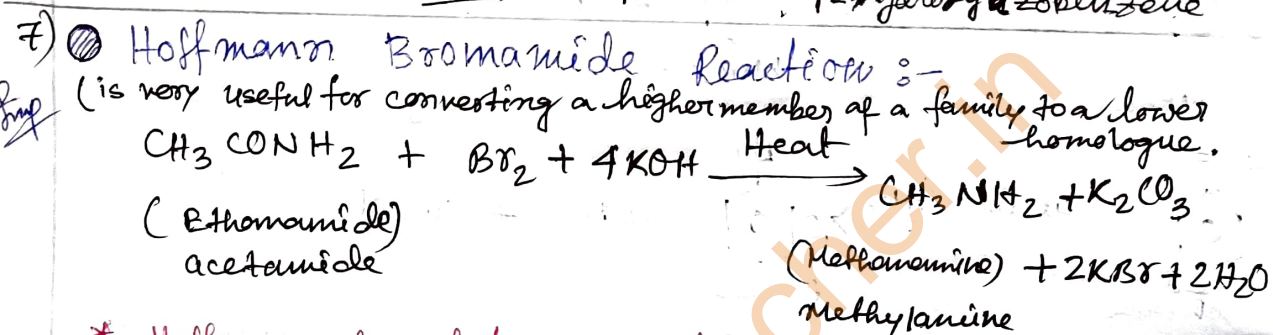 7) Hoffmann Bromamide Reaction :-
Imp (is very useful for converting a higher member of a family to a lower homologue.
CH3 CONH2 + Br2 + 4KOH Heat → CH3NH2 + K2CO3
(Ethanamide) (Methanamine) + 2KBr + 2H2O
acetamide Methylamine
cher.in